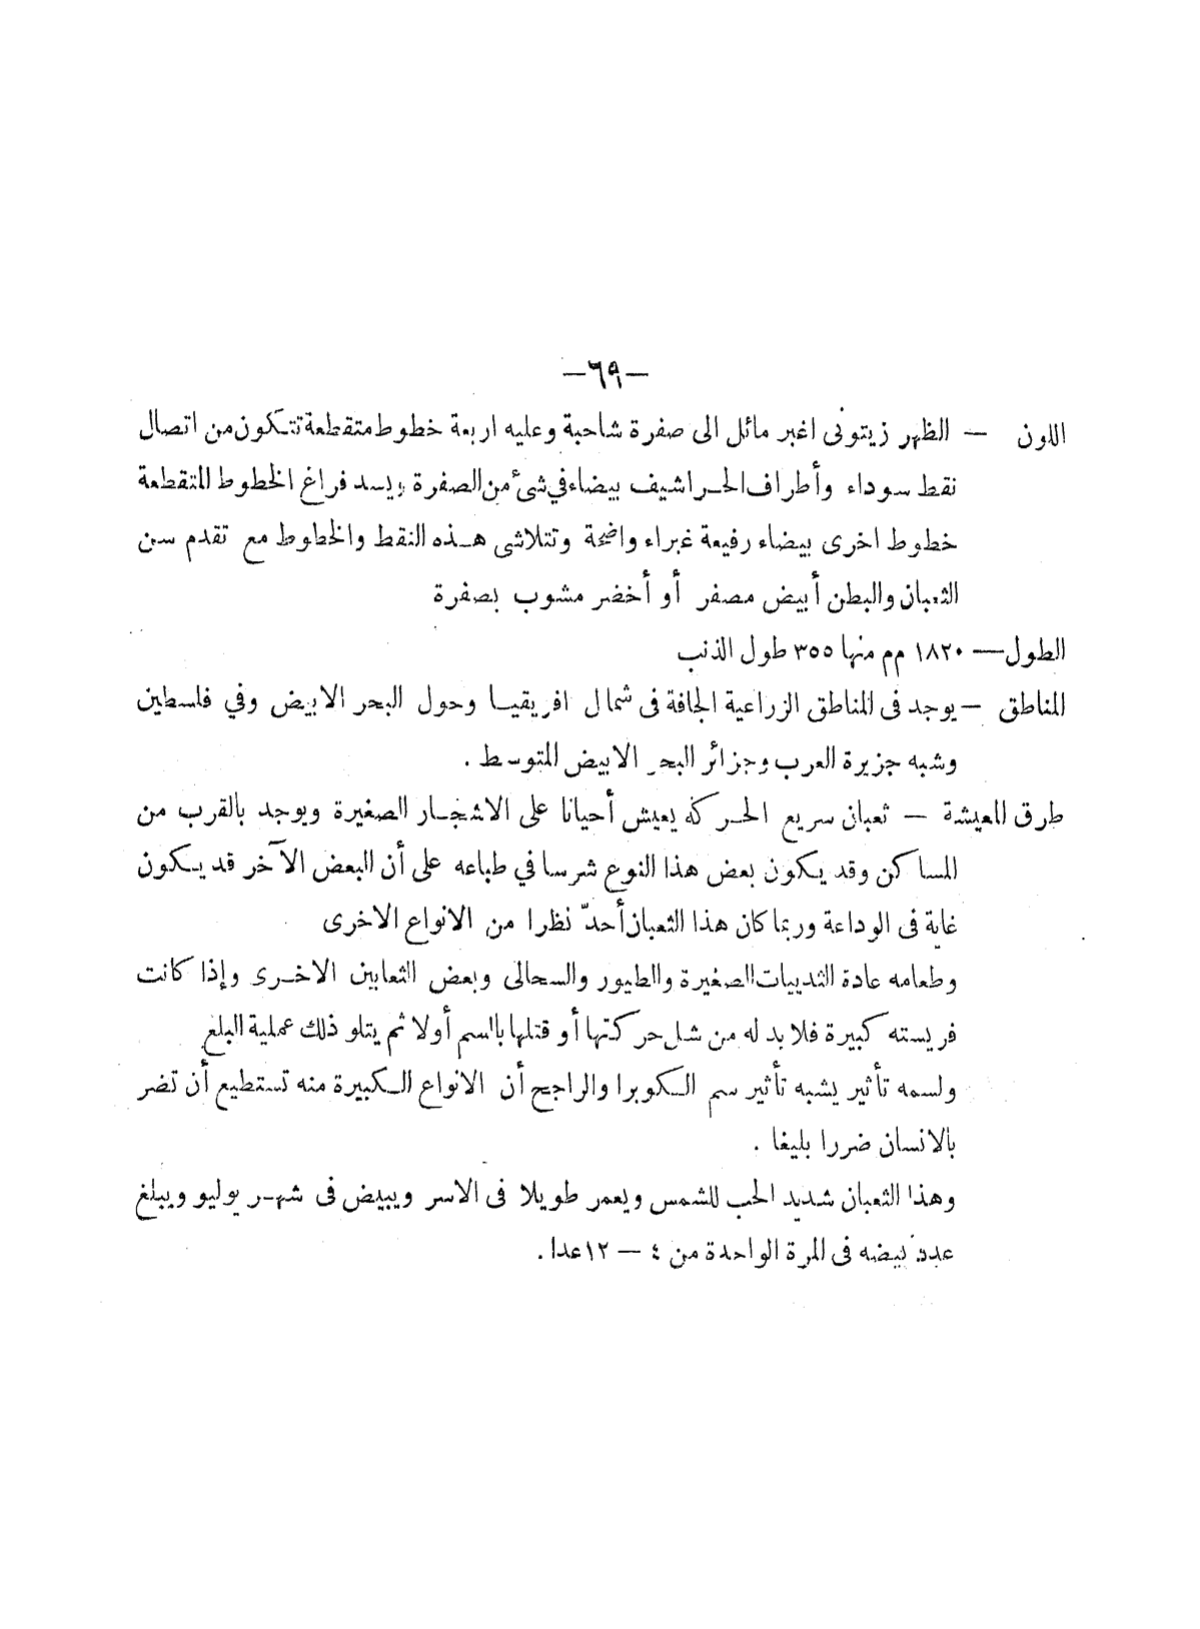 —٦٩—
اللون — الظهر زيتونى اغبر مائل الى صفرة شاحبة وعليه اربعة خطوط متقطعة تتكون من اتصال
نقط سوداء وأطراف الحراشيف بيضاء في شئ من الصفرة ويسد فراغ الخطوط المتقطعة
خطوط اخرى بيضاء رفيعة غبراء واضحة وتتلاشى هذه النقط والخطوط مع تقدم سن
الثعبان والبطن أبيض مصفر أو أخضر مشوب بصفرة
الطول — ١٨٢٠ مم منها ٣٥٥ طول الذنب
المناطق — يوجد فى المناطق الزراعية الجافة فى شمال افريقيا وحول البحر الابيض وفي فلسطين
وشبه جزيرة العرب وجزائر البحر الابيض المتوسط .
طرق المعيشة — ثعبان سريع الحركه يعيش أحيانا على الاشجار الصغيرة ويوجد بالقرب من
المساكن وقد يكون بعض هذا النوع شرسا في طباعه على أن البعض الآخر قد يكون
غاية فى الوداعة وربما كان هذا الثعبان أحدّ نظرا من الانواع الاخرى
وطعامه عادة الثدييات الصغيرة والطيور والسحالى وبعض الثعابين الاخرى وإذا كانت
فريسته كبيرة فلا بد له من شل حركتها أو قتلها بالسم أولا ثم يتلو ذلك عملية البلع
ولسمه تأثير يشبه تأثير سم الكوبرا والراجح أن الانواع الكبيرة منه تستطيع أن تضر
بالانسان ضررا بليغا .
وهذا الثعبان شديد الحب للشمس ويعمر طويلا فى الاسر ويبيض فى شهر يوليو ويبلغ
عدد بيضه فى المرة الواحدة من ٤ — ١٢ عدا .